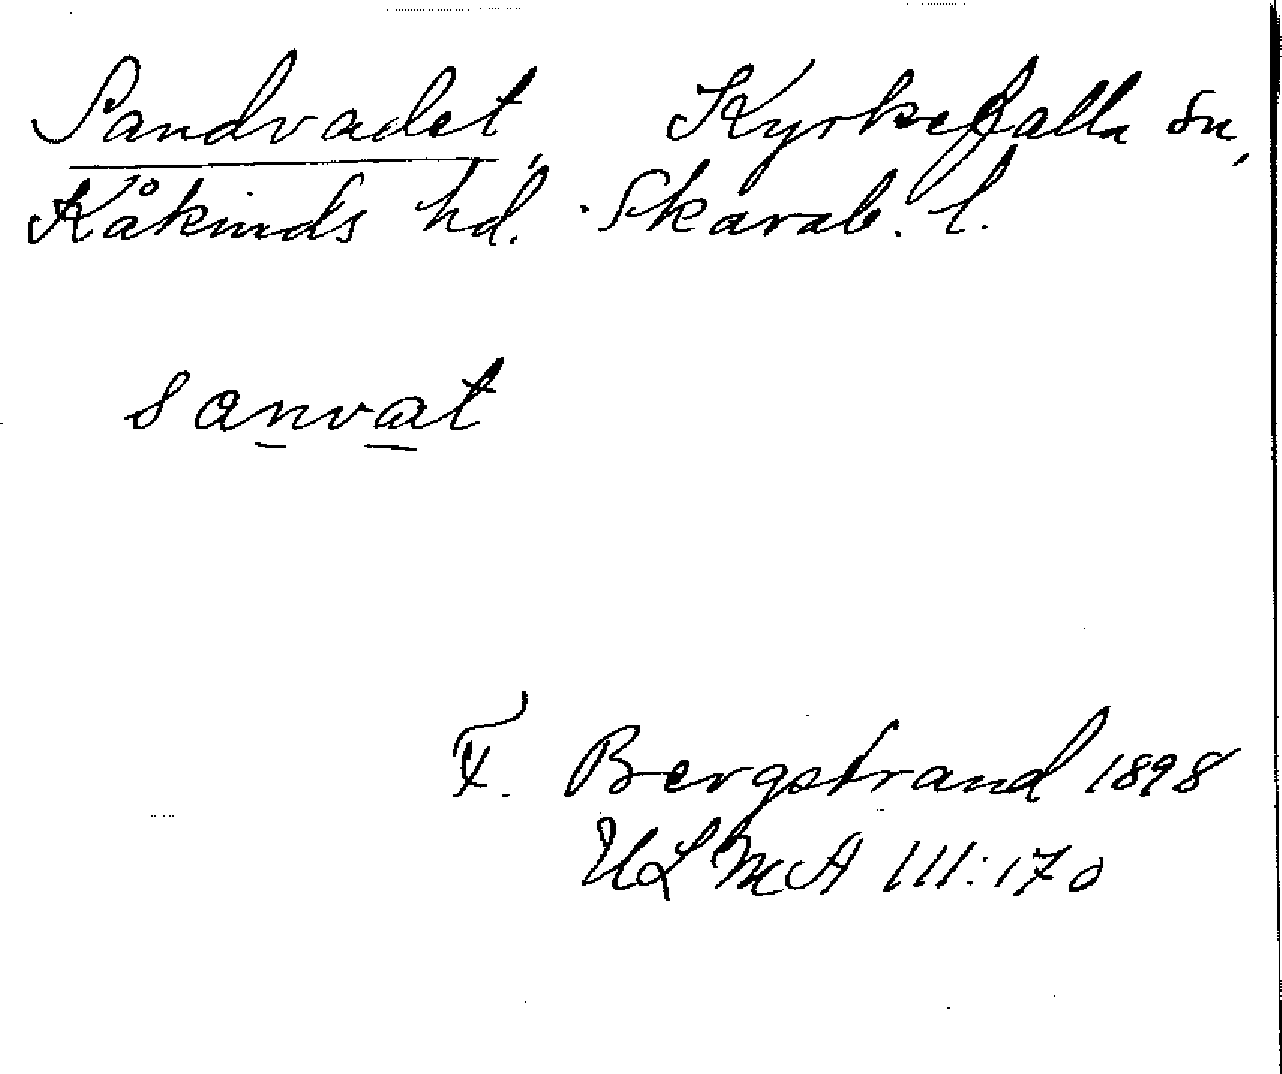 Sandvadet, Kyrkefalla sn,
Kåkinds hd. Skarab. l.
sanvat
F. Bergstrand 1898
ULMA 111:170